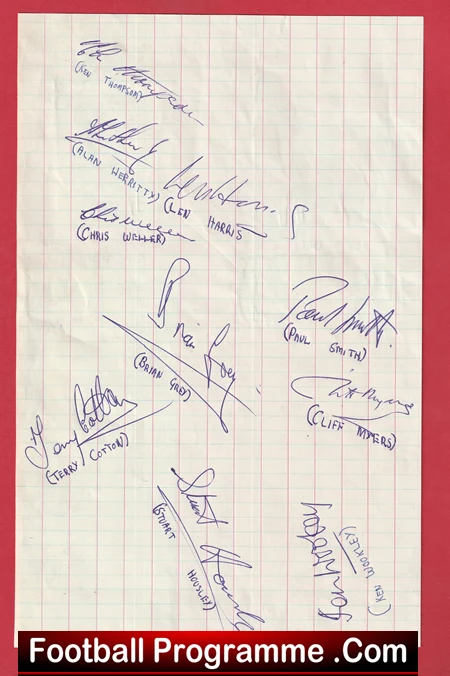 Ken Thompson
(KEN THOMPSON)
(ALAN WERRITTY)
Len Harris
(LEN HARRIS)
Chris Weller
(CHRIS WELLER)
Brian Grey
(BRIAN GREY)
Paul Smith
(PAUL SMITH)
Cliff Myers
(CLIFF MYERS)
Terry Cotton
(TERRY COTTON)
Stuart Housley
(STUART HOUSLEY)
(KEN WOOKLEY)
Football Programme .Com